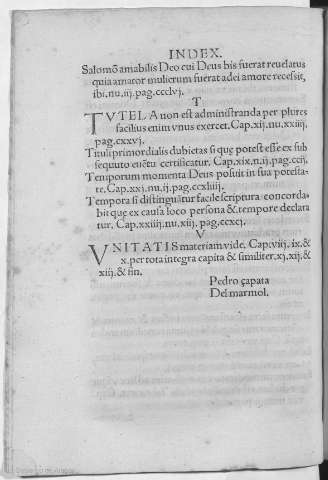 INDEX.
Salomō amabilis Deo cui Deus bis fuerat reuelatus
quia amator mulierum fuerat a dei amore recessit,
ibi. nu. iij. pag. ccclvj.
T
TVTELA non est administranda per plures
facilius enim vnus exercet. Cap. xij. nu. xxiiij.
pag. cxxvj.
Tituli primordialis dubietas si quę potest esse ex sub
sequuto euētu certificatur. Cap. xix. n. ij. pag. ccij.
Temporum momenta Deus posuit in sua potesta-
te. Cap. xxj. nu. ij. pag. ccxliiij.
Tempora si distinguātur facile scriptura concorda-
bit que ex causa loco persona & tempore declara
tur. Cap. xxiiij. nu. xij. pag. ccxcj.
V
VNITATIS materiam vide. Cap. viij. ix. &
x. per tota integra capita & similiter. xj. xij. &
xiij. & fin.
Pedro çapata
Del marmol.